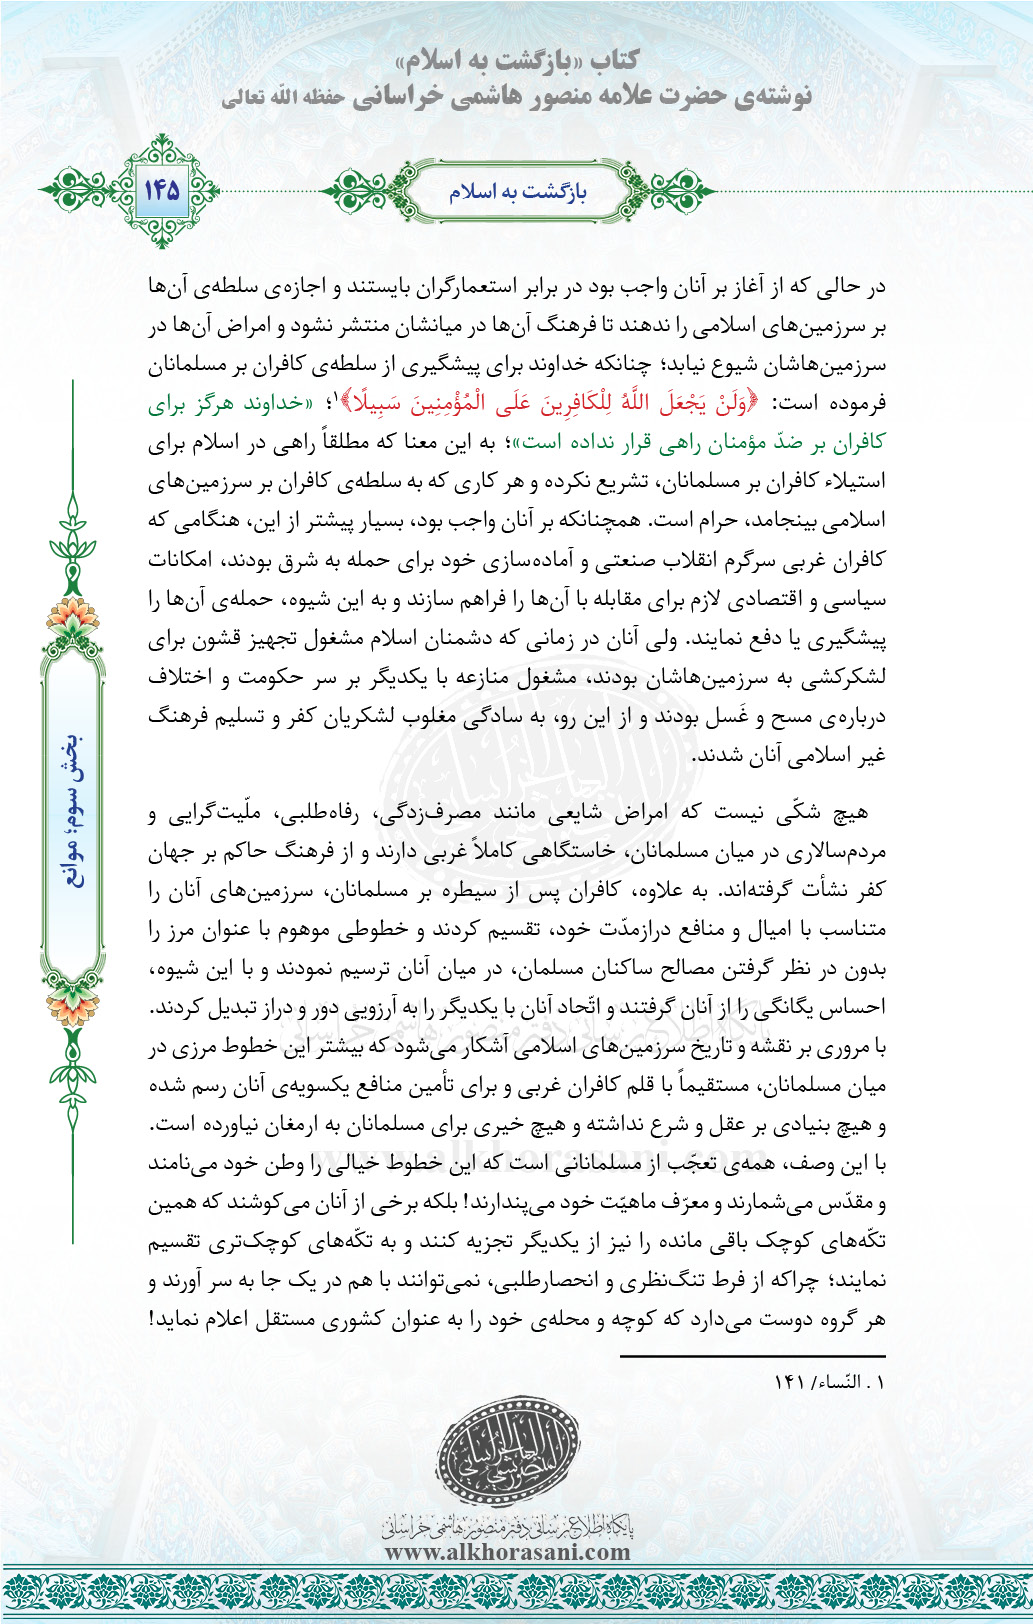 کتاب «بازگشت به اسلام»
نوشته‌ی حضرت علامه منصور هاشمی خراسانی حفظه الله تعالی
بازگشت به اسلام
۱۴۵
در حالی که از آغاز بر آنان واجب بود در برابر استعمارگران بایستند و اجازه‌ی سلطه‌ی آن‌ها
بر سرزمین‌های اسلامی را ندهند تا فرهنگ آن‌ها در میانشان منتشر نشود و امراض آن‌ها در
سرزمین‌هاشان شیوع نیابد؛ چنانکه خداوند برای پیشگیری از سلطه‌ی کافران بر مسلمانان
فرموده است: ﴿وَلَنْ يَجْعَلَ اللَّهُ لِلْكَافِرِينَ عَلَى الْمُؤْمِنِينَ سَبِيلًا﴾۱؛ «خداوند هرگز برای
کافران بر ضدّ مؤمنان راهی قرار نداده است»؛ به این معنا که مطلقاً راهی در اسلام برای
استیلاء کافران بر مسلمانان، تشریع نکرده و هر کاری که به سلطه‌ی کافران بر سرزمین‌های
اسلامی بینجامد، حرام است. همچنانکه بر آنان واجب بود، بسیار پیشتر از این، هنگامی که
کافران غربی سرگرم انقلاب صنعتی و آماده‌سازی خود برای حمله به شرق بودند، امکانات
سیاسی و اقتصادی لازم برای مقابله با آن‌ها را فراهم سازند و به این شیوه، حمله‌ی آن‌ها را
پیشگیری یا دفع نمایند. ولی آنان در زمانی که دشمنان اسلام مشغول تجهیز قشون برای
لشکرکشی به سرزمین‌هاشان بودند، مشغول منازعه با یکدیگر بر سر حکومت و اختلاف
درباره‌ی مسح و غَسل بودند و از این رو، به سادگی مغلوب لشکریان کفر و تسلیم فرهنگ
غیر اسلامی آنان شدند.
هیچ شکّی نیست که امراض شایعی مانند مصرف‌زدگی، رفاه‌طلبی، ملّیت‌گرایی و
مردم‌سالاری در میان مسلمانان، خاستگاهی کاملاً غربی دارند و از فرهنگ حاکم بر جهان
کفر نشأت گرفته‌اند. به علاوه، کافران پس از سیطره بر مسلمانان، سرزمین‌های آنان را
متناسب با امیال و منافع درازمدّت خود، تقسیم کردند و خطوطی موهوم با عنوان مرز را
بدون در نظر گرفتن مصالح ساکنان مسلمان، در میان آنان ترسیم نمودند و با این شیوه،
احساس یگانگی را از آنان گرفتند و اتّحاد آنان با یکدیگر را به آرزویی دور و دراز تبدیل کردند.
با مروری بر نقشه و تاریخ سرزمین‌های اسلامی آشکار می‌شود که بیشتر این خطوط مرزی در
میان مسلمانان، مستقیماً با قلم کافران غربی و برای تأمین منافع یکسویه‌ی آنان رسم شده
و هیچ بنیادی بر عقل و شرع نداشته و هیچ خیری برای مسلمانان به ارمغان نیاورده است.
با این وصف، همه‌ی تعجّب از مسلمانانی است که این خطوط خیالی را وطن خود می‌نامند
و مقدّس می‌شمارند و معرّف ماهیّت خود می‌پندارند! بلکه برخی از آنان می‌کوشند که همین
تکّه‌های کوچک باقی مانده را نیز از یکدیگر تجزیه کنند و به تکّه‌های کوچک‌تری تقسیم
نمایند؛ چراکه از فرط تنگ‌نظری و انحصارطلبی، نمی‌توانند با هم در یک جا به سر آورند و
هر گروه دوست می‌دارد که کوچه و محله‌ی خود را به عنوان کشوری مستقل اعلام نماید!
۱ . النّساء/ ۱۴۱
بخش سوم؛ موانع
پایگاه اطلاع‌رسانی دفتر منصور هاشمی خراسانی
www.alkhorasani.com
المنصور الهاشمی الخراسانی
پایگاه اطلاع‌رسانی دفتر منصور هاشمی خراسانی
www.alkhorasani.com